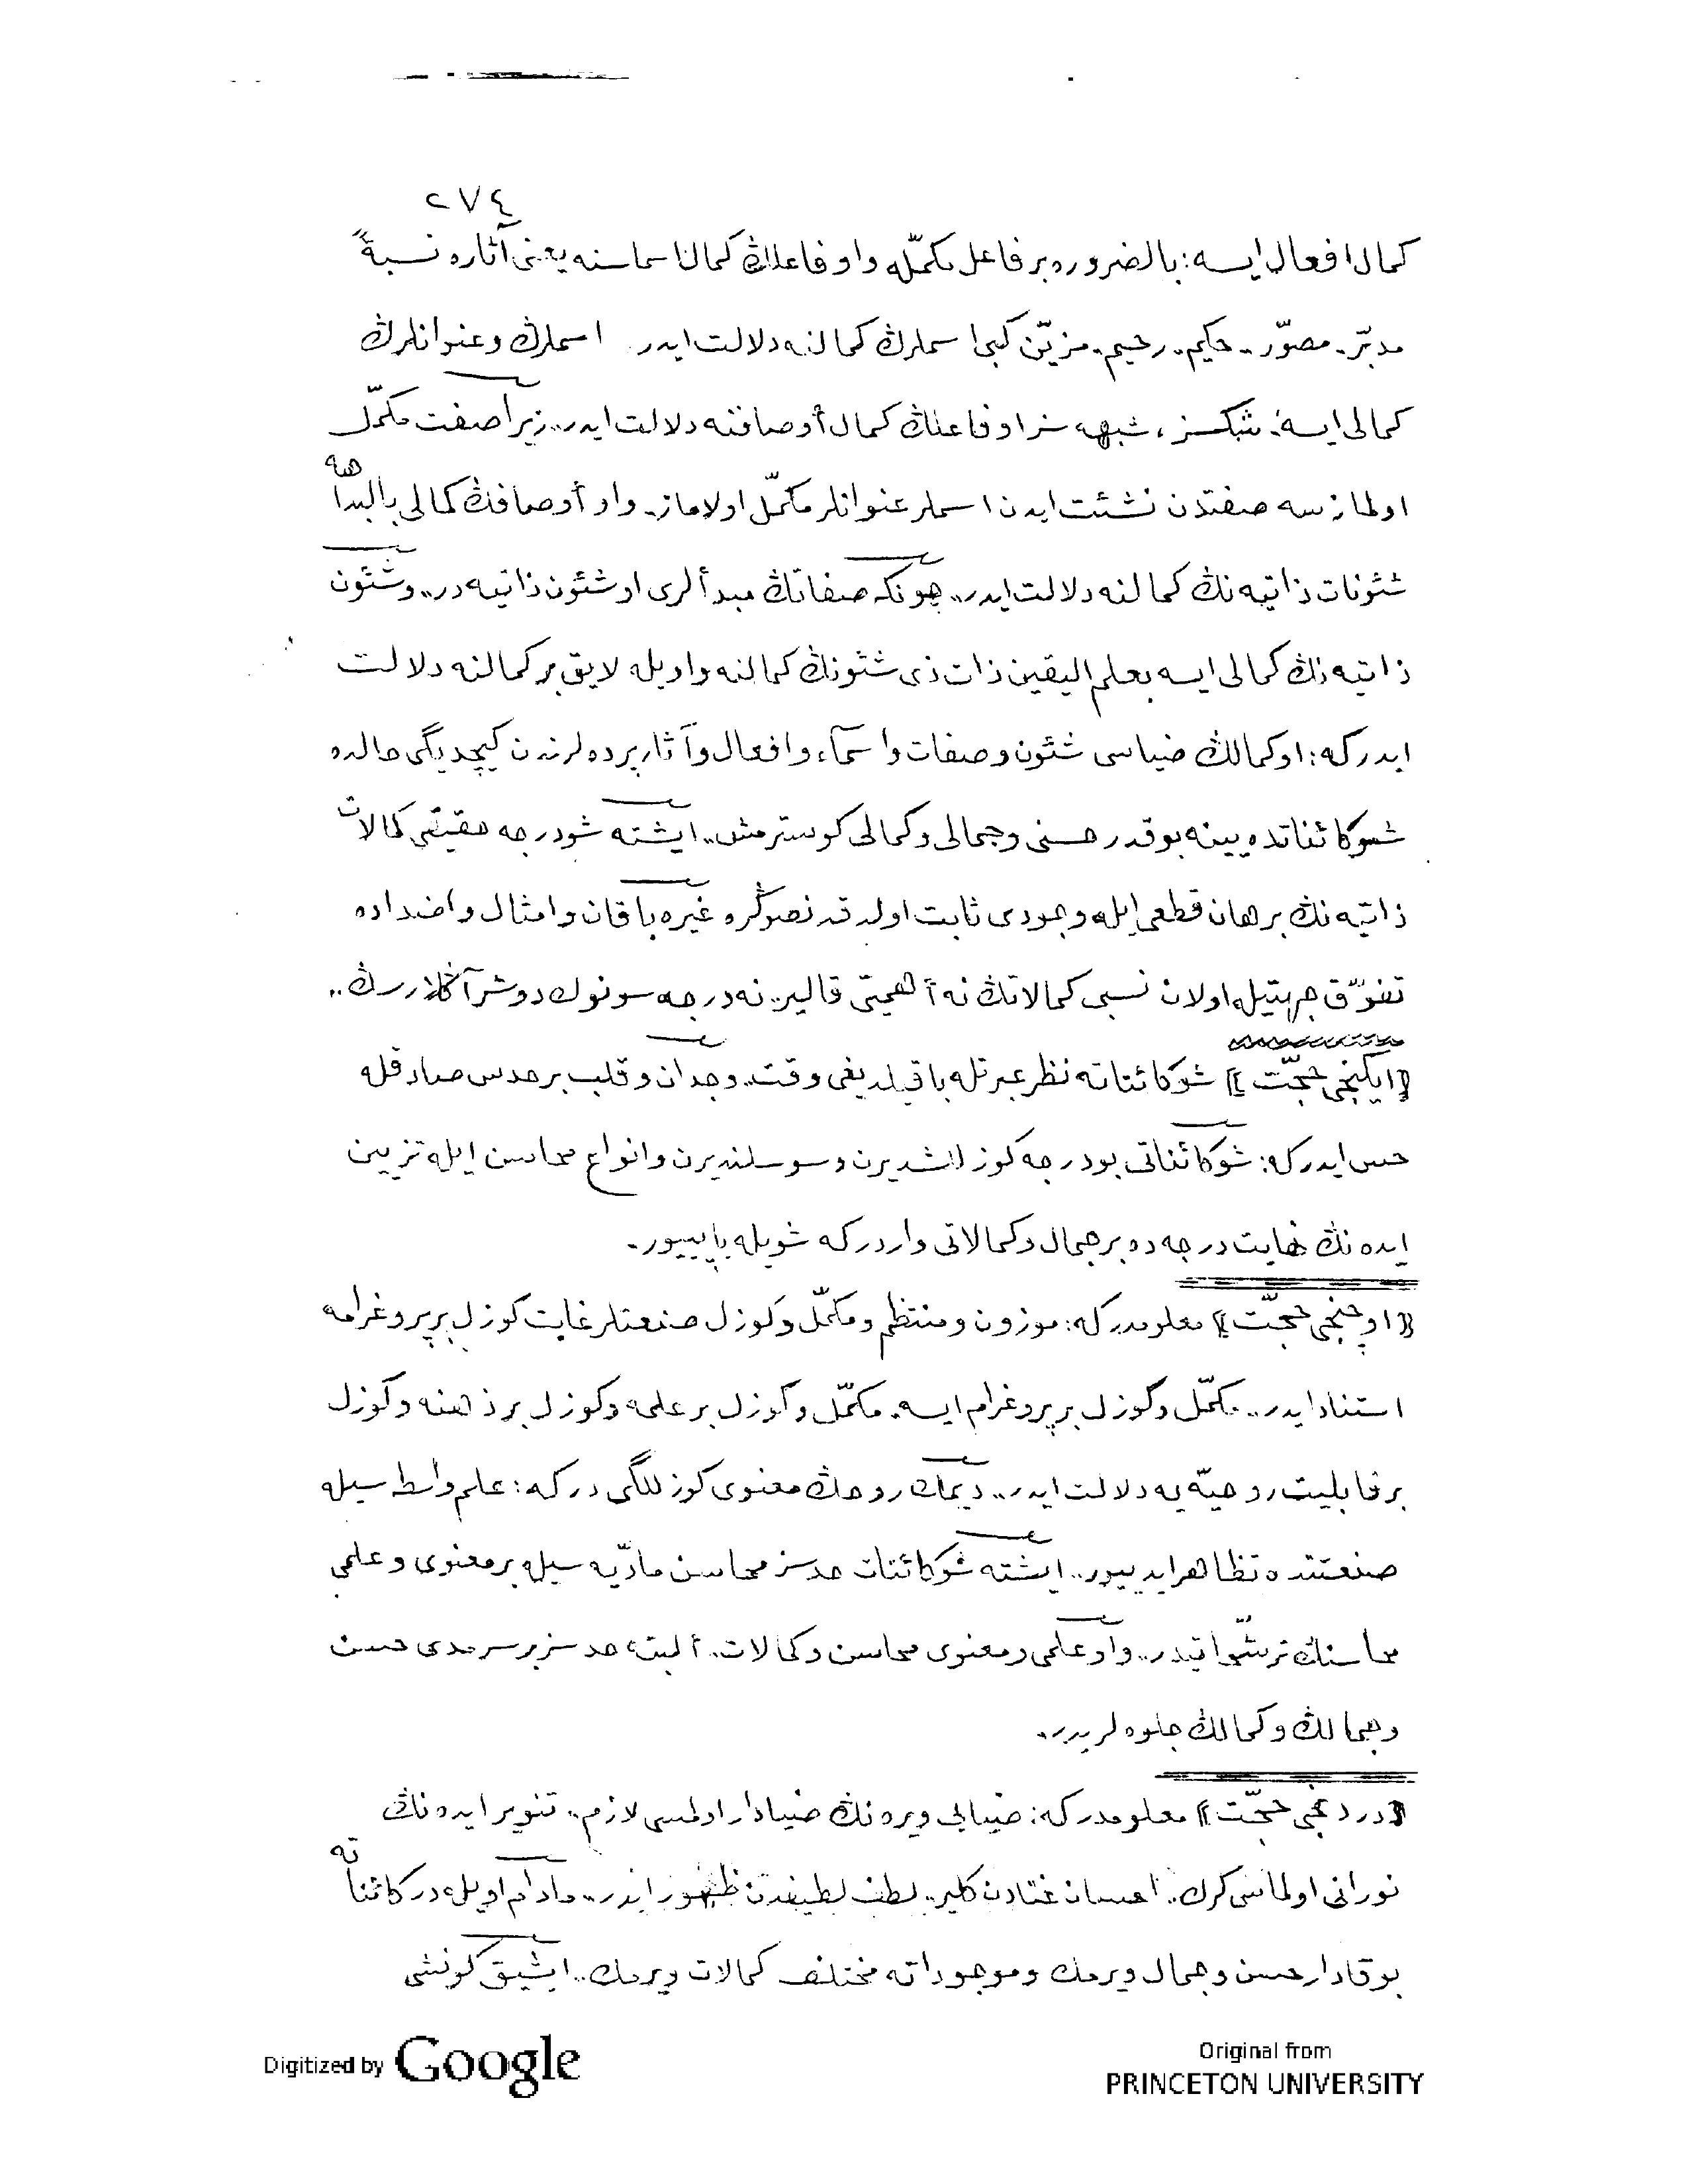 ٢٧٤
كمال افعال ايسه: بالضروره بر فاعل مكمّله و او فاعلڭ كمال اسماسنه يعنى آثاره نسبةً
مدبّر. مصوّر.. حكيم. رحيم. مزيّن كبى اسملرڭ كمالنه دلالت ايدر. اسملرڭ و عنوانلرڭ
كمالى ايسه: شكسز، شبهه سز او فاعلڭ كمال أوصافنه دلالت ايدر.. زيرا صفت مكمّل
اولمازسه صفتدن نشئت ايدن اسملر عنوانلر مكمّل اولاماز. و او أوصافڭ كمالى بالبداهه
شئونات ذاتيه نڭ كمالنه دلالت ايدر.. چونكه صفاتڭ مبدألرى او شئون ذاتيه در.. و شئون
ذاتيه نڭ كمالى ايسه بعلم اليقين ذات ذى شئونڭ كمالنه و اويله لايق بر كمالنه دلالت
ايدركه: او كمالڭ ضياسى شئون و صفات و اسمآء و افعال و آثار پرده لرندن كيچديگى حالده
شو كائناتده يينه بوقدر حسنى و جمالى و كمالى كوسترمش.. ايشته شو درجه حقيقى كمالات
ذاتيه نڭ برهان قطعى ايله وجودى ثابت اولدقدنصوڭره غيره باقان و امثال و اضداده
تفوّق جهتيله اولان نسبى كمالاتڭ نه أهميتى قالير. نه درجه سونوك دوشر آڭلارسڭ..
﴿ايكنجى حجّت﴾ شو كائناته نظر عبرتله باقيلديغى وقت.. وجدان و قلب بر حدس صادقله
حس ايدركه: شو كائناتى بو درجه كوزلشديرن و سوسلنديرن و انواع محاسن ايله تزيين
ايده نڭ نهايت درجه ده بر جمال و كمالاتى واردركه شويله ياپييور.
﴿اوچنجى حجّت﴾ معلومدركه: موزون و منتظم و مكمّل و كوزل صنعتلر غايت كوزل بر پروغرامه
استناد ايدر.. مكمّل و كوزل بر پروغرام ايسه. مكمّل و كوزل بر علمه و كوزل بر ذهنه و كوزل
بر قابليت روحيّه يه دلالت ايدر.. ديمك روحڭ معنوى كوزللگى دركه: علم واسطه سيله
صنعتنده تظاهر ايدييور.. ايشته شو كائنات حدسز محاسن مادّيه سيله بر معنوى و علمى
محاسنڭ ترشّحاتيدر.. و او علمى و معنوى محاسن و كمالات. ألبته حدسز بر سرمدى حسن
و جمالڭ و كمالڭ جلوه لريدر.
﴿دردنجى حجّت﴾ معلومدركه: ضيايى ويره نڭ ضيادار اولمسى لازم. تنوير ايده نڭ
نورانى اولماسى كرك. احسان غنادن كلير. لطف لطيفدن ظهور ايدر.. مادام اويله در كائناته
بو قادار حسن و جمال ويرمك و موجوداته مختلف كمالات ويرمك.. ايشيق كونشى
Digitized by Google
Original from
PRINCETON UNIVERSITY